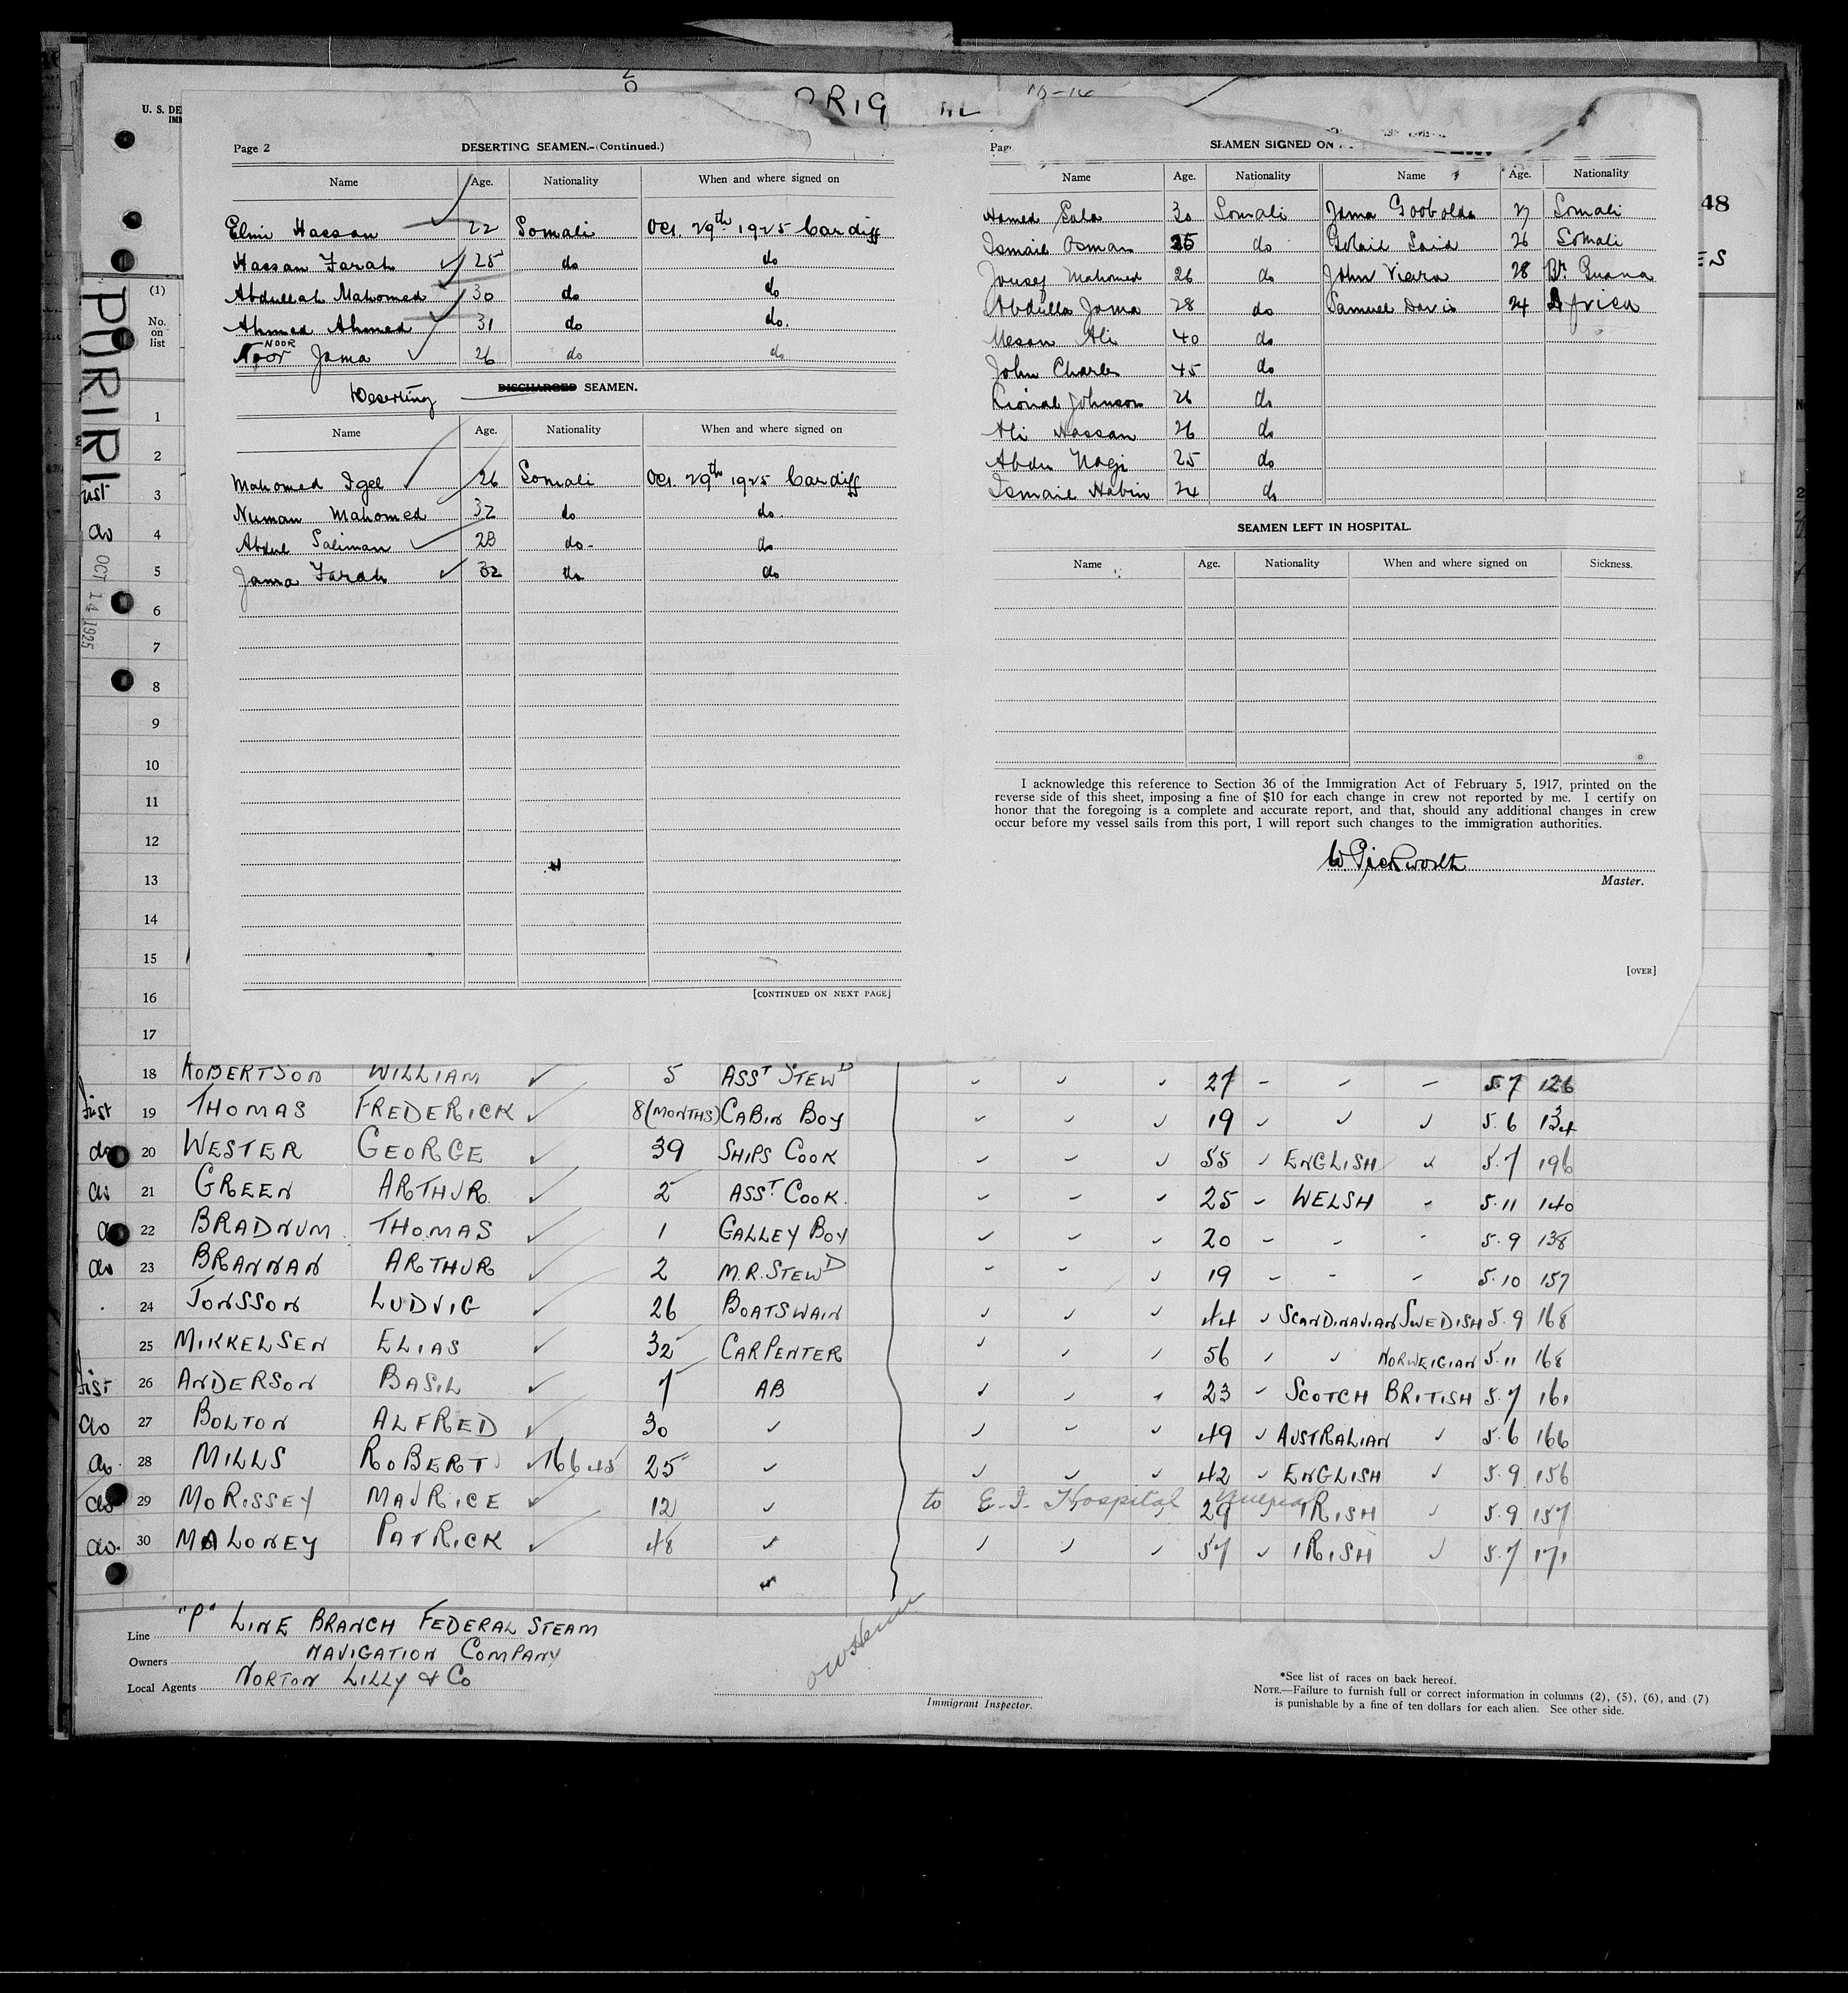 ORIG AL
10-14
U. S. DE
IMM
48
ES
PORIRI
OCT 14 1925
Page 2
DESERTING SEAMEN.-(Continued.)
Name Age. Nationality When and where signed on
Elmi Hassan 22 Somali Oct. 29th 1925 Cardiff
Hassan Farah 25 do do
Abdullah Mahomed 30 do do
Ahmed Ahmed 31 do do.
NOOR
Noor Jama 26 do do
Deserting DISCHARGED SEAMEN.
Name Age. Nationality When and where signed on
Mahomed Igel 26 Somali Oct. 29th 1925 Cardiff
Numan Mahomed 32 do do.
Abdul Saliman 28 do- do
Jama Farah 32 do do
[CONTINUED ON NEXT PAGE]
SEAMEN SIGNED ON
Name Age. Nationality Name Age. Nationality
Hamed 30 Somali Jama 27 Somali
Ismail Osman 25 do Said 26 Somali
Yousef Mahomed 26 do John Viera 28 Br. Guana
Abdulla Jama 28 do Samuel Davis 24 Africa
Ali 40 do
John Charles 45 do
Lional Johnson 26 do
Ali Hassan 26 do
Abdu Nagi 25 do
Ismail Habin 24 do
SEAMEN LEFT IN HOSPITAL.
Name Age. Nationality When and where signed on Sickness.
I acknowledge this reference to Section 36 of the Immigration Act of February 5, 1917, printed on the
reverse side of this sheet, imposing a fine of $10 for each change in crew not reported by me. I certify on
honor that the foregoing is a complete and accurate report, and that, should any additional changes in crew
occur before my vessel sails from this port, I will report such changes to the immigration authorities.
W. Pickworth
Master.
[OVER]
(1)
No.
on
list
1
2
3
do 4
5
6
7
8
9
10
11
12
13
14
15
16
17
18 ROBERTSON WILLIAM 5 ASST STEWD 27 5.7 126
first 19 THOMAS FREDERICK 8(MONTHS) CABIN BOY 19 5.6 134
do 20 WESTER GEORGE 39 SHIPS COOK 55 ENGLISH 5.7 196
do 21 GREEN ARTHUR. 2 ASST COOK. 25 WELSH 5.11 140
do 22 BRADNUM THOMAS 1 GALLEY BOY 20 5.9 138
do 23 BRANNAN ARTHUR 2 M.R. STEWD 19 5.10 157
24 JONSSON LUDVIG 26 BOATSWAIN 44 SCANDINAVIAN SWEDISH 5.9 168
25 MIKKELSEN ELIAS 32 CARPENTER 56 NORWEIGIAN 5.11 168
first 26 ANDERSON BASIL 7 AB 23 SCOTCH BRITISH 5.7 161
do 27 BOLTON ALFRED 30 49 AUSTRALIAN 5.6 166
do. 28 MILLS ROBERT 16645 25 42 ENGLISH 5.9 156
do 29 MORISSEY MAURICE 12 to E.I. Hospital 29 IRISH 5.9 157
do. 30 MALONEY PATRICK 48 57 IRISH 5.7 171
Line "P" LINE BRANCH FEDERAL STEAM
Owners NAVIGATION COMPANY
Local Agents NORTON LILLY & CO
Immigrant Inspector.
*See list of races on back hereof.
NOTE.—Failure to furnish full or correct information in columns (2), (5), (6), and (7)
is punishable by a fine of ten dollars for each alien. See other side.